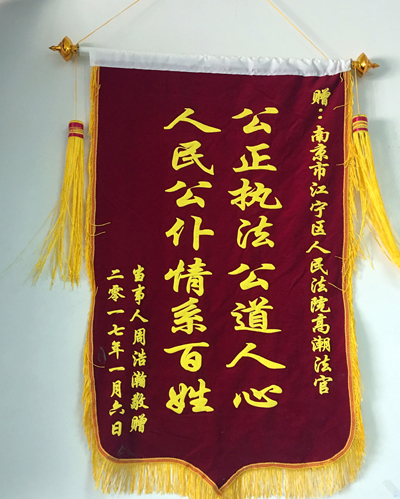 赠：南京市江宁区人民法院高潮法官
公正执法公道人心
人民公仆情系百姓
当事人周浩瀚敬赠
二零一七年一月六日